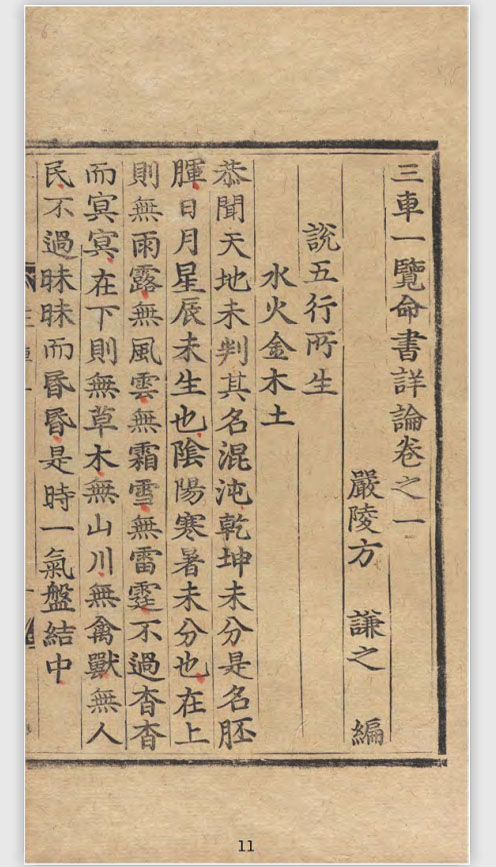 三車一覽命書詳論卷之一
嚴陵方 謙之 編
說五行所生
水火金木土
恭聞天地未判其名混沌乾坤未分是名胚
腪日月星辰未生也陰陽寒暑未分也在上
則無雨露無風雲無霜雪無雷霆不過杳杳
而冥冥在下則無草木無山川無禽獸無人
民不過昧昧而昏昏是時一氣盤結中
11